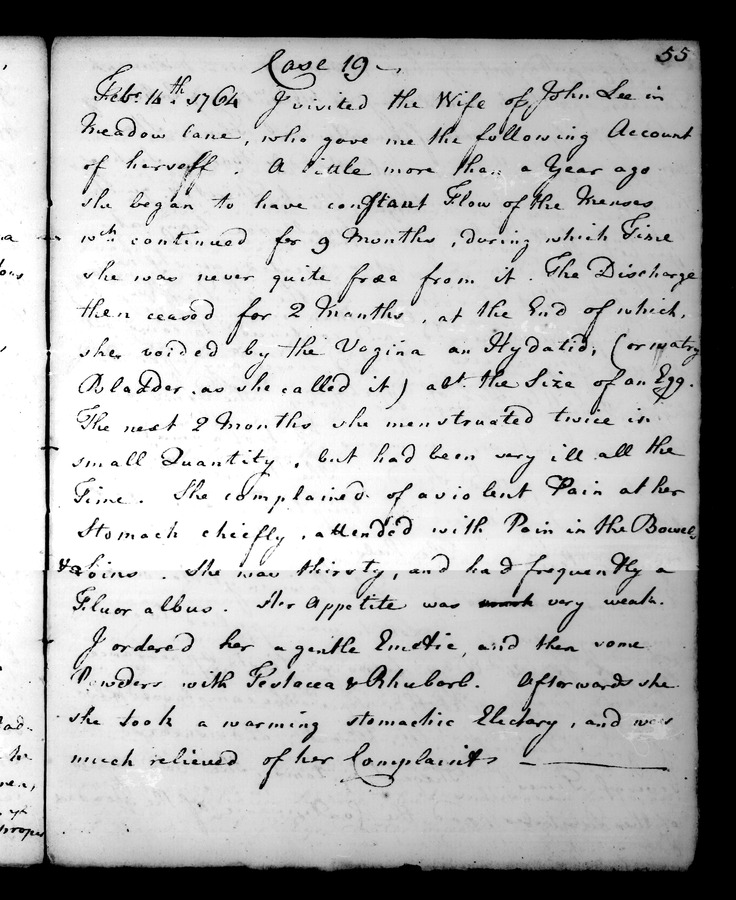 55
Case 19 -
Feb: 14th 1764 I visited the Wife of John Lee in
Meadow lane, who gave me the following Account
of herself. A little more than a Year ago
she began to have constant Flow of the Menses
wch continued for 9 Months, during which Time
she was never quite free from it. The Discharge
then ceased for 2 Months, at the End of which,
she voided by the Vagina an Hydatid, (or watry
Bladder as she called it) abt. the Size of an Egg.
The next 2 Months she menstruated twice in
small Quantity, but had been very ill all the
Time. She complained of a violent Pain at her
Stomach chiefly, attended with Pain in the Bowels
& Loins. She was thirsty, and had frequently a
Fluor albus. Her Appetite was much very weak.
I ordered her a gentle Emetic, and then some
Powders with Testacea & Rhubarb. Afterwards she
she took a warming stomachic Electary, and was
much relieved of her Complaints —